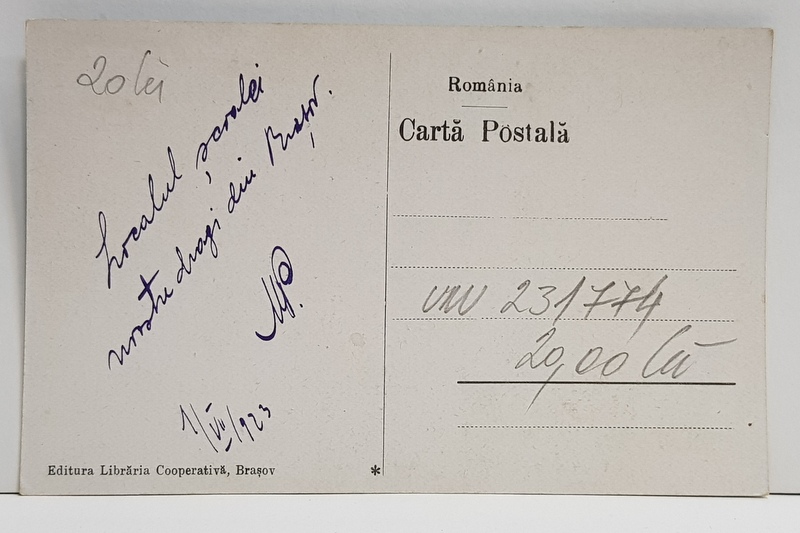 20 lei
Localul școalei
noastre dragi din Brașov.
MP.
1/VII/923
Editura Librăria Cooperativă, Brașov
*
România
Cartă Poștală
231774
20,00 lei